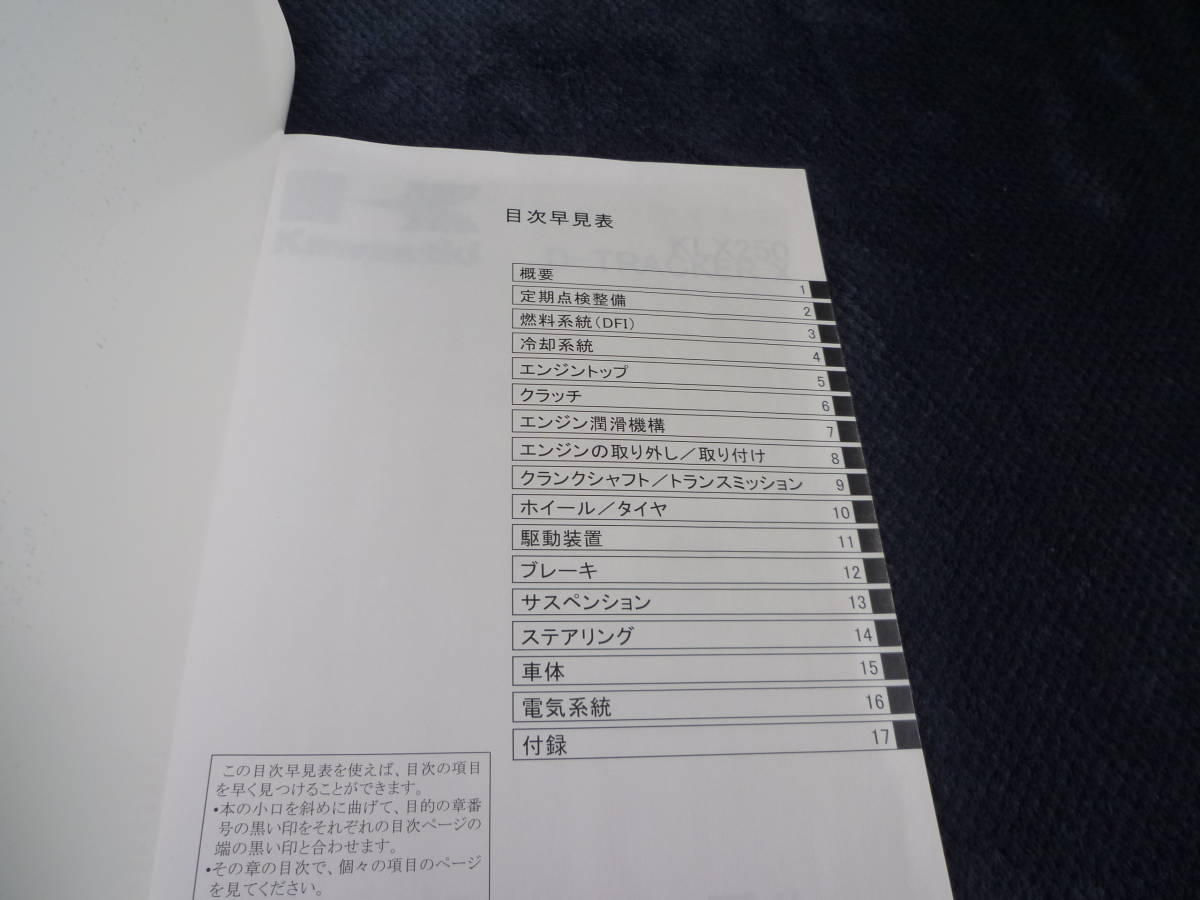 目次早見表
概要 1
定期点検整備 2
燃料系統(DFI) 3
冷却系統 4
エンジントップ 5
クラッチ 6
エンジン潤滑機構 7
エンジンの取り外し/取り付け 8
クランクシャフト/トランスミッション 9
ホイール/タイヤ 10
駆動装置 11
ブレーキ 12
サスペンション 13
ステアリング 14
車体 15
電気系統 16
付録 17
この目次早見表を使えば、目次の項目
を早く見つけることができます。
•本の小口を斜めに曲げて、目的の章番
号の黒い印をそれぞれの目次ページの
端の黒い印と合わせます。
•その章の目次で、個々の項目のページ
を見てください。
Kawasaki
KLX250
D-TRACKER X